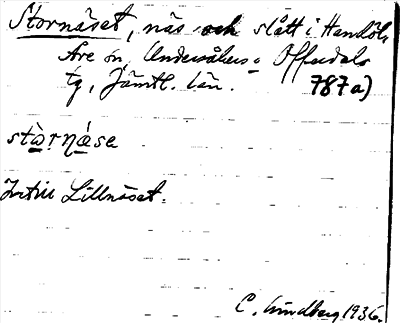 Stornäset, näs och slått i Handöl,
Åre sn, Undersåkers o Offerdals
tg, Jämtl. län. 787a)
stọ̀rṇạ́se
Intill Lillnäset.
C. Lindberg 1936.